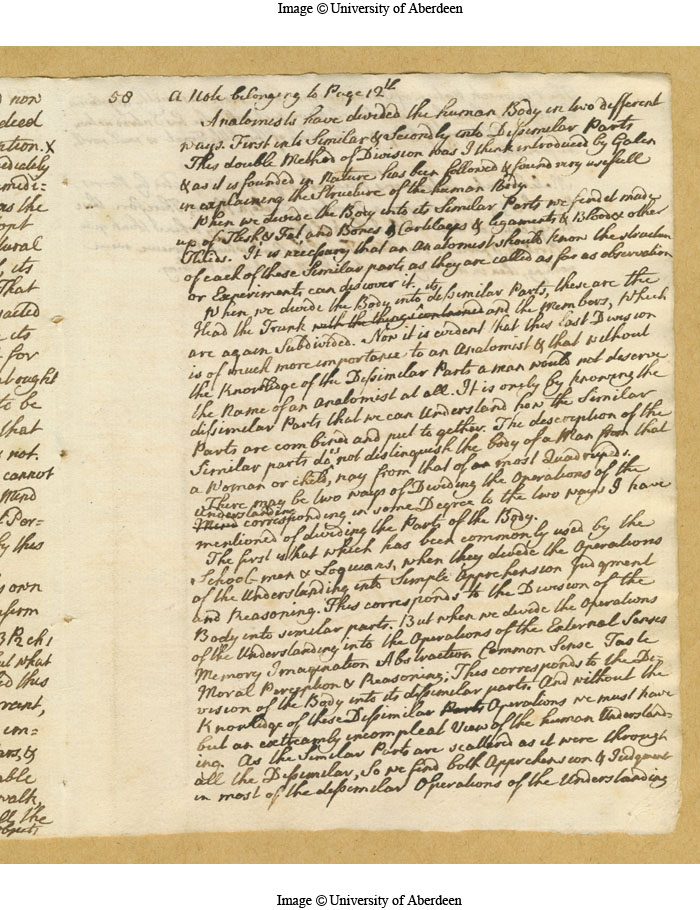 Image © University of Aberdeen
58 A Note belonging to Page 12th
Anatomists have divided the human Body in two different
ways. First into Similar & Secondly into Dissimilar Parts
This double Method of Division was I think introduced by Galen
& as it is founded in Nature has been followed & found very usefull
in explaining the Structure of the human Body.
When we divide the Body into its Similar Parts we find it made
up of Flesh & Fat and Bones & Cartilages & ligaments & Blood & other
Fluids. It is necessary that an Anatomist should know the structure
of each of these Similar parts as they are called as far as observation
or Experiments can discover it.
When we divide the Body into its dissimilar Parts, these are the
Head the Trunk with the things contained and the Members, which
are again Subdivided. Now it is evident that this last Division
is of much more importance to an Anatomist & that without
the Knowledge of the Dissimilar Parts a man would not deserve
the Name of an Anatomist at all. It is only by knowing the
dissimilar Parts that we can understand how the Similar
Parts are combined and put together. The description of the
Similar parts does not distinguish the body of a Man from that
a Woman or child, nay from that of most Quadrupeds.
There may be two ways of Dividing the Operations of the
Understanding
Mind corresponding in some Degree to the two ways I have
mentioned of dividing the Parts of the Body.
The first is that which has been commonly used by the
School-men & Logicians, when they divide the Operations
of the Understanding into Simple Apprehension Judgment
and Reasoning. This corresponds to the Division of the
Body into similar parts. But when we divide the Operations
of the Understanding into the Operations of the External Senses
Memory Imagination Abstraction Common Sense Taste
Moral Perception & Reasoning; This corresponds to the Di-
vision of the Body into its dissimilar parts. And without the
Knowledge of these Dissimilar Parts Operations we must have
but an extreamly incompleat View of the human Understand-
ing. As the Similar Parts are scattered as it were through
all the Dissimilar, So we find both Apprehension & Judgment
in most of the dissimilar Operations of the Understanding
Image © University of Aberdeen